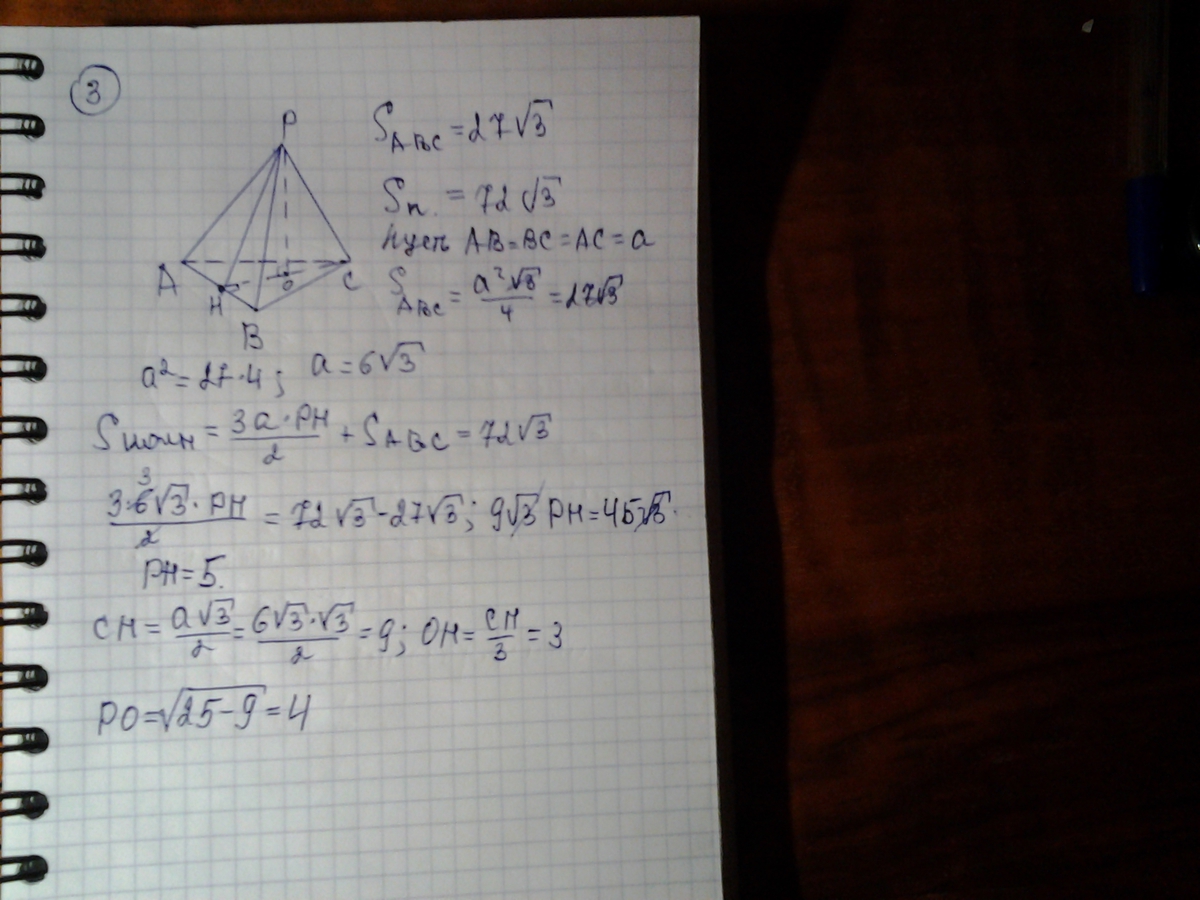 3
P
A
H
B
O
C
S ABC = 27√3
Sп. = 72√3
Пусть AB=BC=AC=a
S ABC = a²√3/4 = 27√3
a² = 27·4; a = 6√3
Sполн = 3a·PH/2 + S ABC = 72√3
3·6√3·PH/2 = 72√3-27√3; 9√3 PH = 45√3.
3
PH = 5.
CH = a√3/2 = 6√3·√3/2 = 9; OH = CH/3 = 3
PO = √25-9 = 4